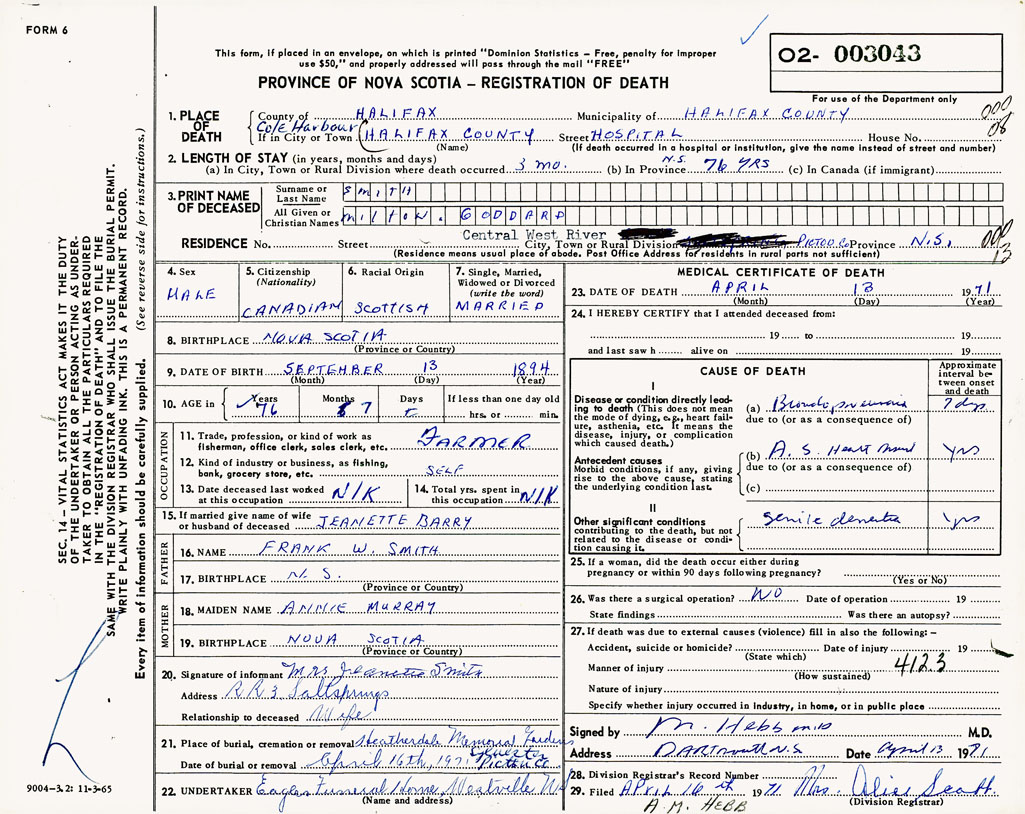 FORM 6
This form, if placed in an envelope, on which is printed "Dominion Statistics – Free, penalty for improper
use $50," and properly addressed will pass through the mail "FREE"
O2- 003043
PROVINCE OF NOVA SCOTIA – REGISTRATION OF DEATH
For use of the Department only
1. PLACE OF DEATH
County of HALIFAX Municipality of HALIFAX COUNTY 000
Cole Harbour
If in City or Town (HALIFAX COUNTY Street HOSPITAL House No. 08
(Name) (If death occurred in a hospital or institution, give the name instead of street and number)
2. LENGTH OF STAY (in years, months and days)
(a) In City, Town or Rural Division where death occurred 3 mo. (b) In Province N.S. 76 YRS (c) In Canada (if immigrant)
3. PRINT NAME OF DECEASED
Surname or Last Name SMITH
All Given or Christian Names MILTON. GODDARD
Central West River
RESIDENCE No. Street City, Town or Rural Division PICTOU Co Province N.S. 000
(Residence means usual place of abode. Post Office Address for residents in rural parts not sufficient) 13
4. Sex
MALE
5. Citizenship
(Nationality)
CANADIAN
6. Racial Origin
SCOTTISH
7. Single, Married,
Widowed or Divorced
(write the word)
MARRIED
8. BIRTHPLACE NOVA SCOTIA
(Province or Country)
9. DATE OF BIRTH SEPTEMBER 13 1894
(Month) (Day) (Year)
10. AGE in Years 76 Months 7 Days If less than one day old
hrs. or min.
OCCUPATION
11. Trade, profession, or kind of work as
fisherman, office clerk, sales clerk, etc. FARMER
12. Kind of industry or business, as fishing,
bank, grocery store, etc. SELF
13. Date deceased last worked
at this occupation N/K
14. Total yrs. spent in
this occupation N/K
15. If married give name of wife
or husband of deceased JEANETTE BARRY
FATHER
16. NAME FRANK W. SMITH
17. BIRTHPLACE N. S.
(Province or Country)
MOTHER
18. MAIDEN NAME ANNIE MURRAY
19. BIRTHPLACE NOVA SCOTIA
(Province or Country)
20. Signature of informant Mrs Jeanette Smith
Address RR3 Saltsprings
Relationship to deceased Wife
21. Place of burial, cremation or removal Heatherdale Memorial Gardens
Sylvester
Date of burial or removal April 16th, 1971 Pictou Co
22. UNDERTAKER Eagles Funeral Home, Westville NS
(Name and address)
MEDICAL CERTIFICATE OF DEATH
23. DATE OF DEATH APRIL 13 1971
(Month) (Day)
24. I HEREBY CERTIFY that I attended deceased from:
19 to 19
and last saw h alive on 19
CAUSE OF DEATH
Approximate
interval be-
tween onset
and death
I
Disease or condition directly lead-
ing to death (This does not
mean the mode of dying, e.g., heart fail-
ure, asthenia, etc. It means the
disease, injury, or complication
which caused death.)
(a) Bronchopneumonia 7 dys
due to (or as a consequence of)
Antecedent causes
Morbid conditions, if any, giving
rise to the above cause, stating
the underlying condition last.
(b) A. S. Heart yrs
due to (or as a consequence of)
(c)
II
Other significant conditions
contributing to the death, but not
related to the disease or condi-
tion causing it.
senile dementia yrs
25. If a woman, did the death occur either during
pregnancy or within 90 days following pregnancy?
(Yes or No)
26. Was there a surgical operation? NO Date of operation 19
State findings Was there an autopsy?
27. If death was due to external causes (violence) fill in also the following: –
Accident, suicide or homicide? Date of injury 19
(State which)
Manner of injury 4123
(How sustained)
Nature of injury
Specify whether injury occurred in industry, in home, or in public place
Signed by M. Hebb MD M.D.
Address DARTMOUTH N.S Date April 13 1971
28. Division Registrar's Record Number
29. Filed APRIL 16th 1971 Mrs. Alice Scott
(Division Registrar)
A. M. HEBB
SEC. 14 – VITAL STATISTICS ACT MAKES IT THE DUTY
OF THE UNDERTAKER OR PERSON ACTING AS UNDER-
TAKER TO OBTAIN ALL THE PARTICULARS REQUIRED
IN THE "REGISTRATION OF DEATH" AND TO FILE THE
SAME WITH THE DIVISION REGISTRAR WHO SHALL ISSUE THE BURIAL PERMIT.
WRITE PLAINLY WITH UNFADING INK. THIS IS A PERMANENT RECORD.
Every item of information should be carefully supplied. (See reverse side for instructions.)
9004-3.2: 11-3-65